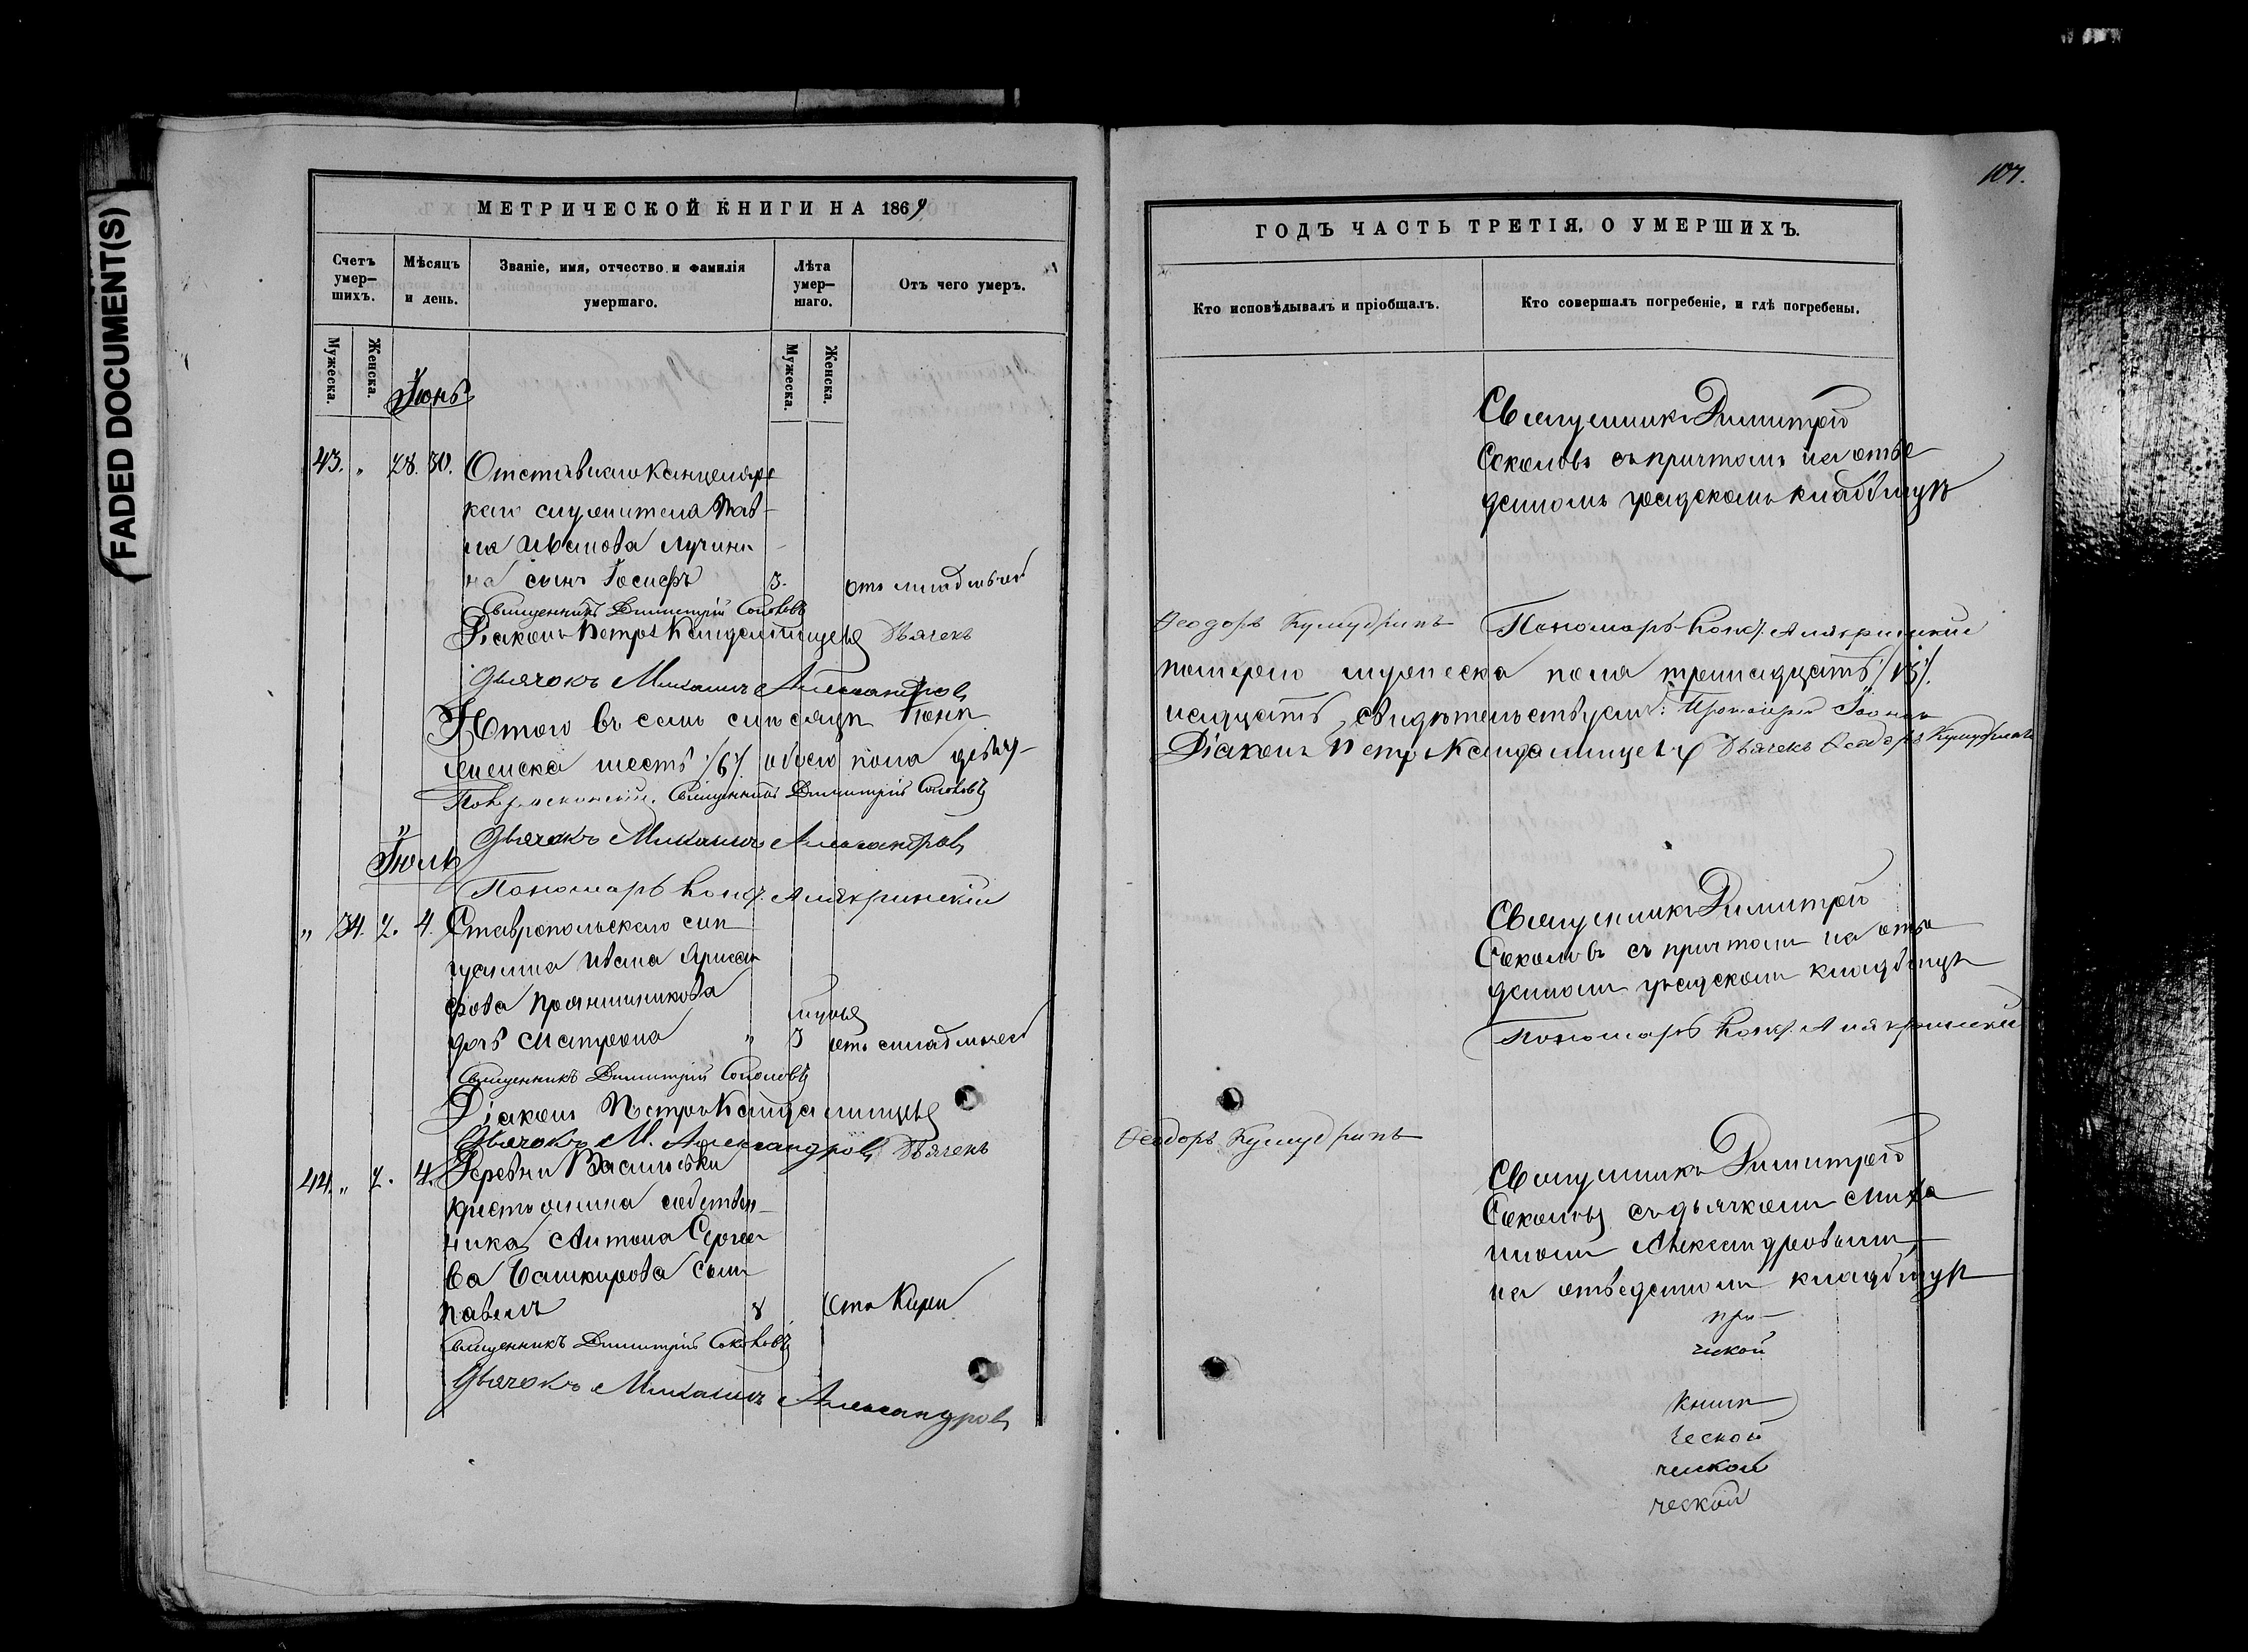 FADED DOCUMENT(S)
МЕТРИЧЕСКОЙ КНИГИ НА 1869
Счетъ умер-шихъ.
Мѣсяцъ и день.
Званіе, имя, отчество и фамилія умершаго.
Лѣта умер-шаго.
Отъ чего умеръ.
Мужеска.
Женска.
Мужеска.
Женска.
Іюнь
43. „ 28. 30. Отставнаго Канцеляр
скаго служителя Пав-
ла Иванова Лучини
на сынъ Іосифъ 3. отъ младенчес
Священникъ Димитрій Соколовъ
Діаконъ Петръ Дьячекъ
Дьячокъ Михаилъ Александровъ
Итого въ семъ мѣсяцѣ Іюнѣ
женска шесть /6/ обоего пола девят-
Покровскій. Священникъ Димитрій Соколовъ
Дьячокъ Михаилъ Александровъ
Іюль
Пономарь Конст. Аляхринскій
„ 34. 2. 4. Ставропольскаго мѣ
щанина Ивана
фова Прянишникова
дочь Матрона „ 3 отъ младенчес
Священникъ Димитрій Соколовъ
Діаконъ Петръ
Дьячокъ М. Александровъ Дьячекъ
44. „ 2. 4. Деревни Васильевки
крестьянина собствен-
ника Антона Сергее
ва Башкирова сынъ
Павелъ 8 отъ Кори
Священникъ Димитрій Соколовъ
Дьячокъ Михаилъ Александровъ
107.
ГОДЪ ЧАСТЬ ТРЕТІЯ, О УМЕРШИХЪ.
Кто исповѣдывалъ и пріобщалъ.
Кто совершалъ погребеніе, и гдѣ погребены.
Священникъ Димитрій
Соколовъ съ причтомъ на отве
денномъ градскомъ кладбищѣ
Ѳеодоръ Кумудринъ Пономарь Конст. Аляхринскій
померло мужеска пола тринадцать /13/.
надцать, свидѣтельствуемъ: Протоіерей Іоаннъ
Діаконъ Петръ Дьячекъ Ѳеодоръ Кумудринъ
Священникъ Димитрій
Соколовъ съ причтомъ на отве
денномъ градскомъ кладбищѣ
Пономарь Конст. Аляхринскій
Ѳеодоръ Кумудринъ
Священникъ Димитрій
Соколовъ съ дьячкомъ Миха
иломъ Александровымъ
на отведенномъ кладбищѣ
при-
ческой
книги
ческой
ческой
ческой